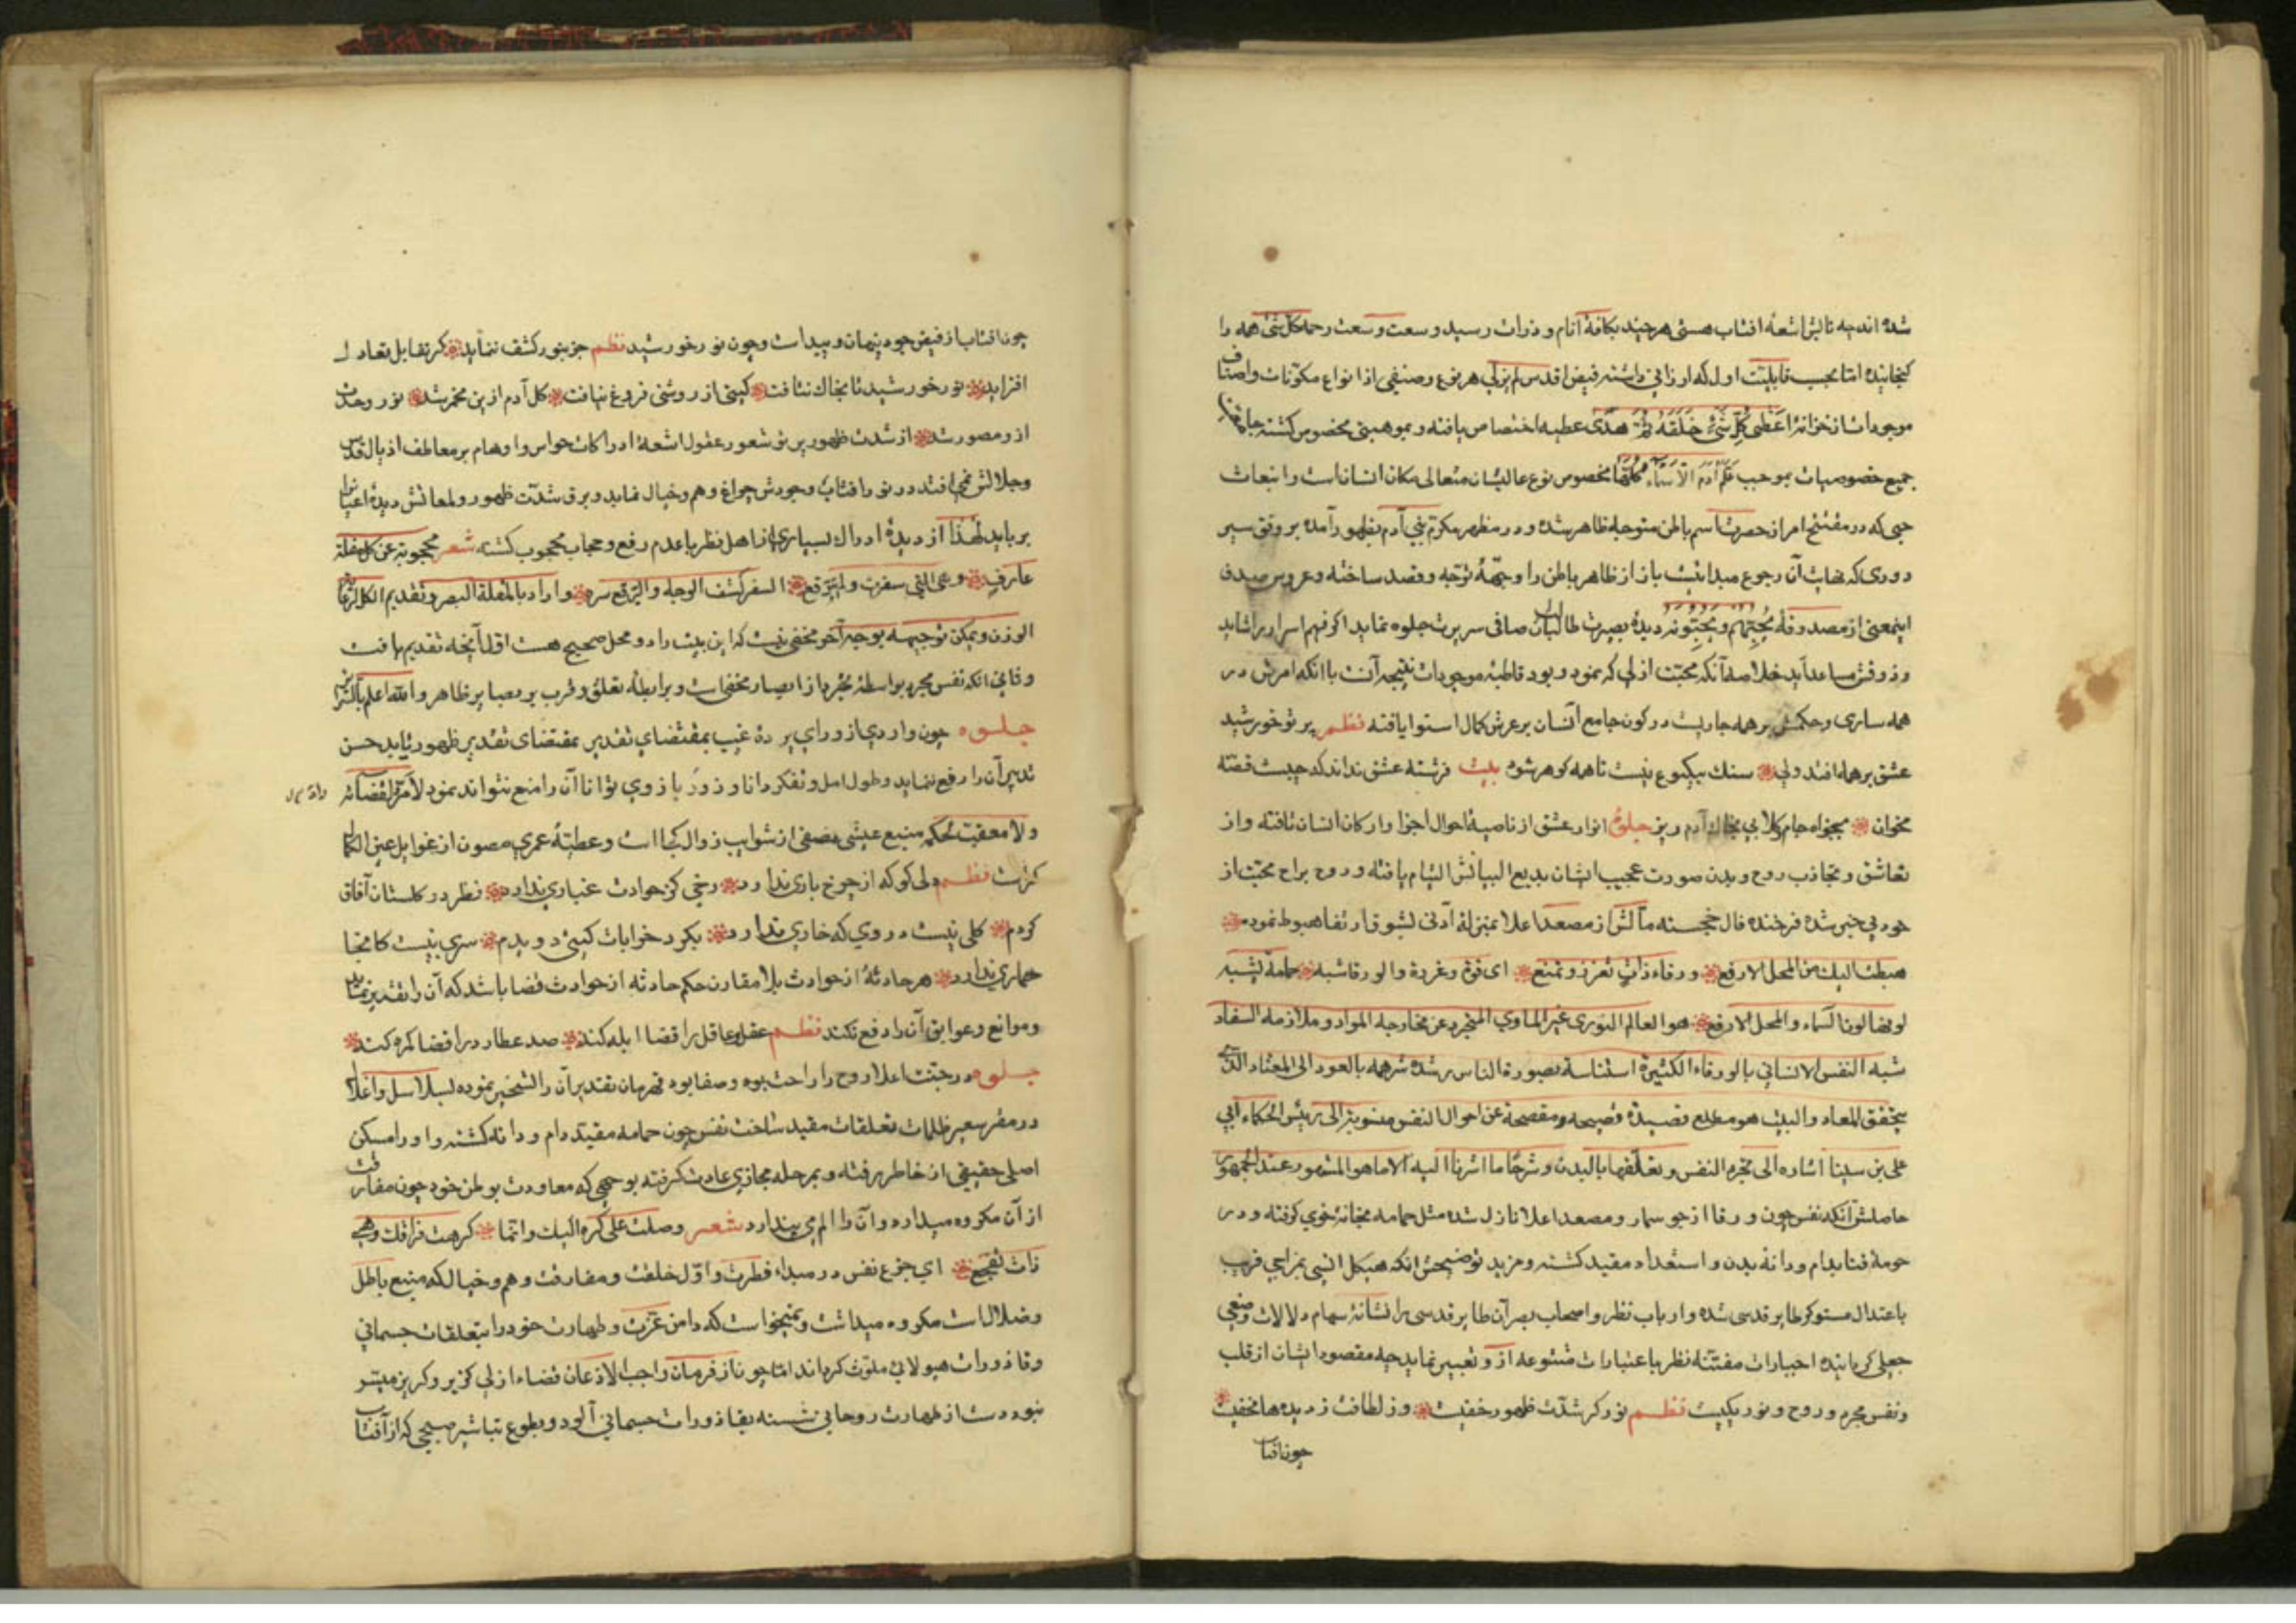 شده اند چه تابش اشعهٔ افتاب هستی هر چند بکافهٔ انام و ذرات رسید و سعت وسعت رحمه کل شئ همه را
کنجانیده اما بحسب قابلیت اول که ارزانی داشته فیض اقدس لم یزلی هر نوع و صنفی از انواع مکونات و اصناف
موجودات از خزانهٔ اعطی کل شئ خلقه ثم هدی عطیه اختصاص یافته و بموهبتی مخصوص کشته
جمیع خصوصیات بموجب علم آدم الاسماء کلها مخصوص نوع عالیشان متعالی مکان انسانست و انبعاث
حبی که در مفتتح امر از حضرت اسم باطن متوجه ظاهر شده و در مظهر مکرم بنی آدم بظهور آمده بر وفق سیر
دوری که نهایت آن رجوع مبدایست باز از ظاهر باطن را وجههٔ توجه و قصد ساخته و عروس صدف
اینمعنی از مصدوقه یحبهم و یحبونه دیدهٔ بصیرت طالبان صافی سریرت جلوه نماید اکر فهم اسرار را شاید
و ذوقش مساعد آید خلاصه آنکه محبت ازلی که نمود و بود قاطبهٔ موجودات نتیجه آنست با انکه امرش در
همه ساری و حکمش بر همه جاریست در کون جامع انسان بر عرش کمال استوا یافته نظم پر تو خورشید
عشق بر همه افتد ولی سنك بیکنوع نیست تا همه کوهر شود بیت فرشته عشق نداند که چیست قصه
مخوان بخواه جام و کلابی بخاك آدم ریز جلوه انوار عشق از ناصیهٔ احوال اجزا و ارکان انسان تافته و از
تعاشق و تجاذب روح و بدن صورت عجیب ایشان بدیع البیانش التیام یافته و روح براح محبت از
خود بی خبر شده فرخنده فال خجسته مآلش از مصعد اعلا بمنزلهٔ آدنی لشوق ارتقا هبوط نموده
هبطت الیك من المحل الارفع ورقاء ذات تعزز و تمنع ای قوة و غردة والورقا شبه حمامة لشبه
لونها لون السماء والمحل الارفع هو العالم النوری غیر الماوی المتجرد عن مخارجه المواد و ملازمه السفاد
شبه النفس الانسانی بالورقاء الکثیرة استئناسة بصورة الناس شدة شرهه بالعود الی المعتاد
یتحقق المعاد والبیت هو مطلع قصیدة فصیحه و مفصحة عن احوال النفس منسوبة الی رئیس الحکماء ابی
علی بن سینا اشاره الی تجرد النفس و تعلقها بالبدن و شرحها ما اشرنا الیه الا ما هو المشهور عند الجمهور
حاصلش آنکه نفس چون ورقا از جو سمار و مصعد اعلا نازل شده مثل حمامه بخانهٔ خوی کرفته و در
حومهٔ فنا بدام و دانهٔ بدن و استعداد مقید کشته و مزید توضیحش انکه هیکل انسی بمزاجی قریب
باعتدال مستوکر طایر قدسی شده و ارباب نظر و اصحاب بصر آن طایر قدسی را نشانهٔ سهام دلالات وضعی
جعلی کردانیده اخبارات مفتنه نظر باعتبارات متنوعه از و تعبیر نماید چه مقصود ایشان از قلب
و نفس مجرد و روح و نور یکیست نظم نور کر شدت ظهور خفیست وز لطافت ز دیدها مخفیست
چون افتاب
چون افتاب از فیض جود پنهان و پیداست و چون نور خورشید نظم جز بنور کشف ننماید کر تقابل تعادل
افزاید نور خورشید تا بخاك نتافت کیتی از روشنی فروغ نیافت کل آدم ازین مخمر شد نور وحدت
ازو مصور شد از شدت ظهور پر تو شعور عقول اشعهٔ ادراکات حواس و اوهام بر معاطف اذیال قدس
و جلالش نمی افتد در نور افتاب وجودش چراغ وهم و خیال نماید و برق شدت ظهور و لمعانش دیدهٔ اعیانرا
برباید لهذا از دیدهٔ ادراك بسیاری از اهل نظر با عدم رفع و حجاب محجوب کشته شعر محجوبة عن کل مقلة
عارف وهی التی سفرت ولم تتبرقع السفر کشف الوجه والبرقع ستره واراد بالمقلة البصر و تقدیم الکل
الوزن و یمکن توجیهه بوجه آخر مخفی نیست که این بیت را دو محل صحیح هست اول آنچه تقدیم یافت
و ثانی انکه نفس مجرده بواسطهٔ تجرد از ابصار مخفیست و برابطهٔ تعلق و قرب بر بصایر ظاهر والله اعلم بالسرایر
جلوه چون واردی از ورای پردهٔ غیب بمقتضای تقدیر بمقتضای تقدیر ظهور نماید حسن
تدبیر آن را رفع ننماید و طول امل و تفکر دانا و زور بازوی توانا آن را منع نتواند نمود لامرد لقضائه
ولا معقب لحکمه منبع عیشی مصفی از شوایب زوال کجا است و عطیهٔ عمری مصون از غوایل عین الکمال
کراست نظم دلی کو که از چرخ باری ندارد رخی کز حوادث غباری ندارد نظر در کلستان آفاق
کردم کلی نیست در وی که خاری ندارد بکرد خرابات کیتی دویدم سری نیست کانجا
خماری ندارد هر حادثهٔ از حوادث بلا مقارن حکم حادثه از حوادث قضا باشد که آن را تقدیر نماید
و موانع و عوایق آن را دفع نکند نظم عقل عاقل را قضا ابله کند صد عطارد را قضا کمره کند
جلوه در جنت اعلا روح را راحت بوده و صفا بوده قهرمان تقدیر آن را تسخیر نموده بسلاسل و اغلال
در مقر سعیر ظلمات تعلقات مقید ساخت نفس چون حمامه مقید دام و دانه کشته و او را مسکن
اصلی حقیقی از خاطر رفته و بمرحله مجازی عادت کرفته بوجهی که معاودت بوطن خود چون مفارقت
از آن مکروه میدارد و آن را الم می پندارد شعر وصلت علی کره الیك وانما کرهت فراقك وهی
ذات تفجع ای جزع نفس در مبداء فطرت و اول خلقت و مفارقت وهم و خیال که منبع باطل
و ضلالات مکروه میداشت و نمیخواست که دامن عزت و طهارت خود را بتعلقات جسمانی
و قاذورات هیولانی ملوث کرداند اما چون از فرمان واجب الاذعان قضاء ازلی کزیر و کریز میسر
نبود دست از طهارت روحانی شسته بقاذورات جسمانی آلود و بطوع تباشیر صبحی که از آفتاب